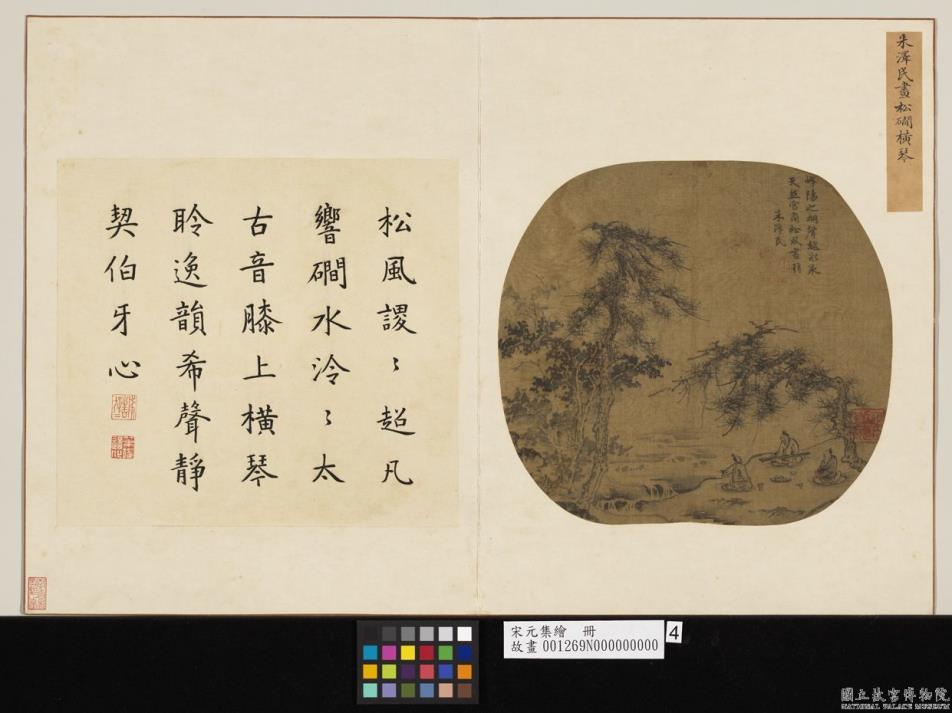 朱澤民畫松磵橫琴
朱澤民
松風謖〻超凡
響磵水泠〻太
古音膝上橫琴
聆逸韻希聲靜
契伯牙心
宋元集繪 冊
故畫 001269N000000000
4
國立故宮博物院
NATIONAL PALACE MUSEUM